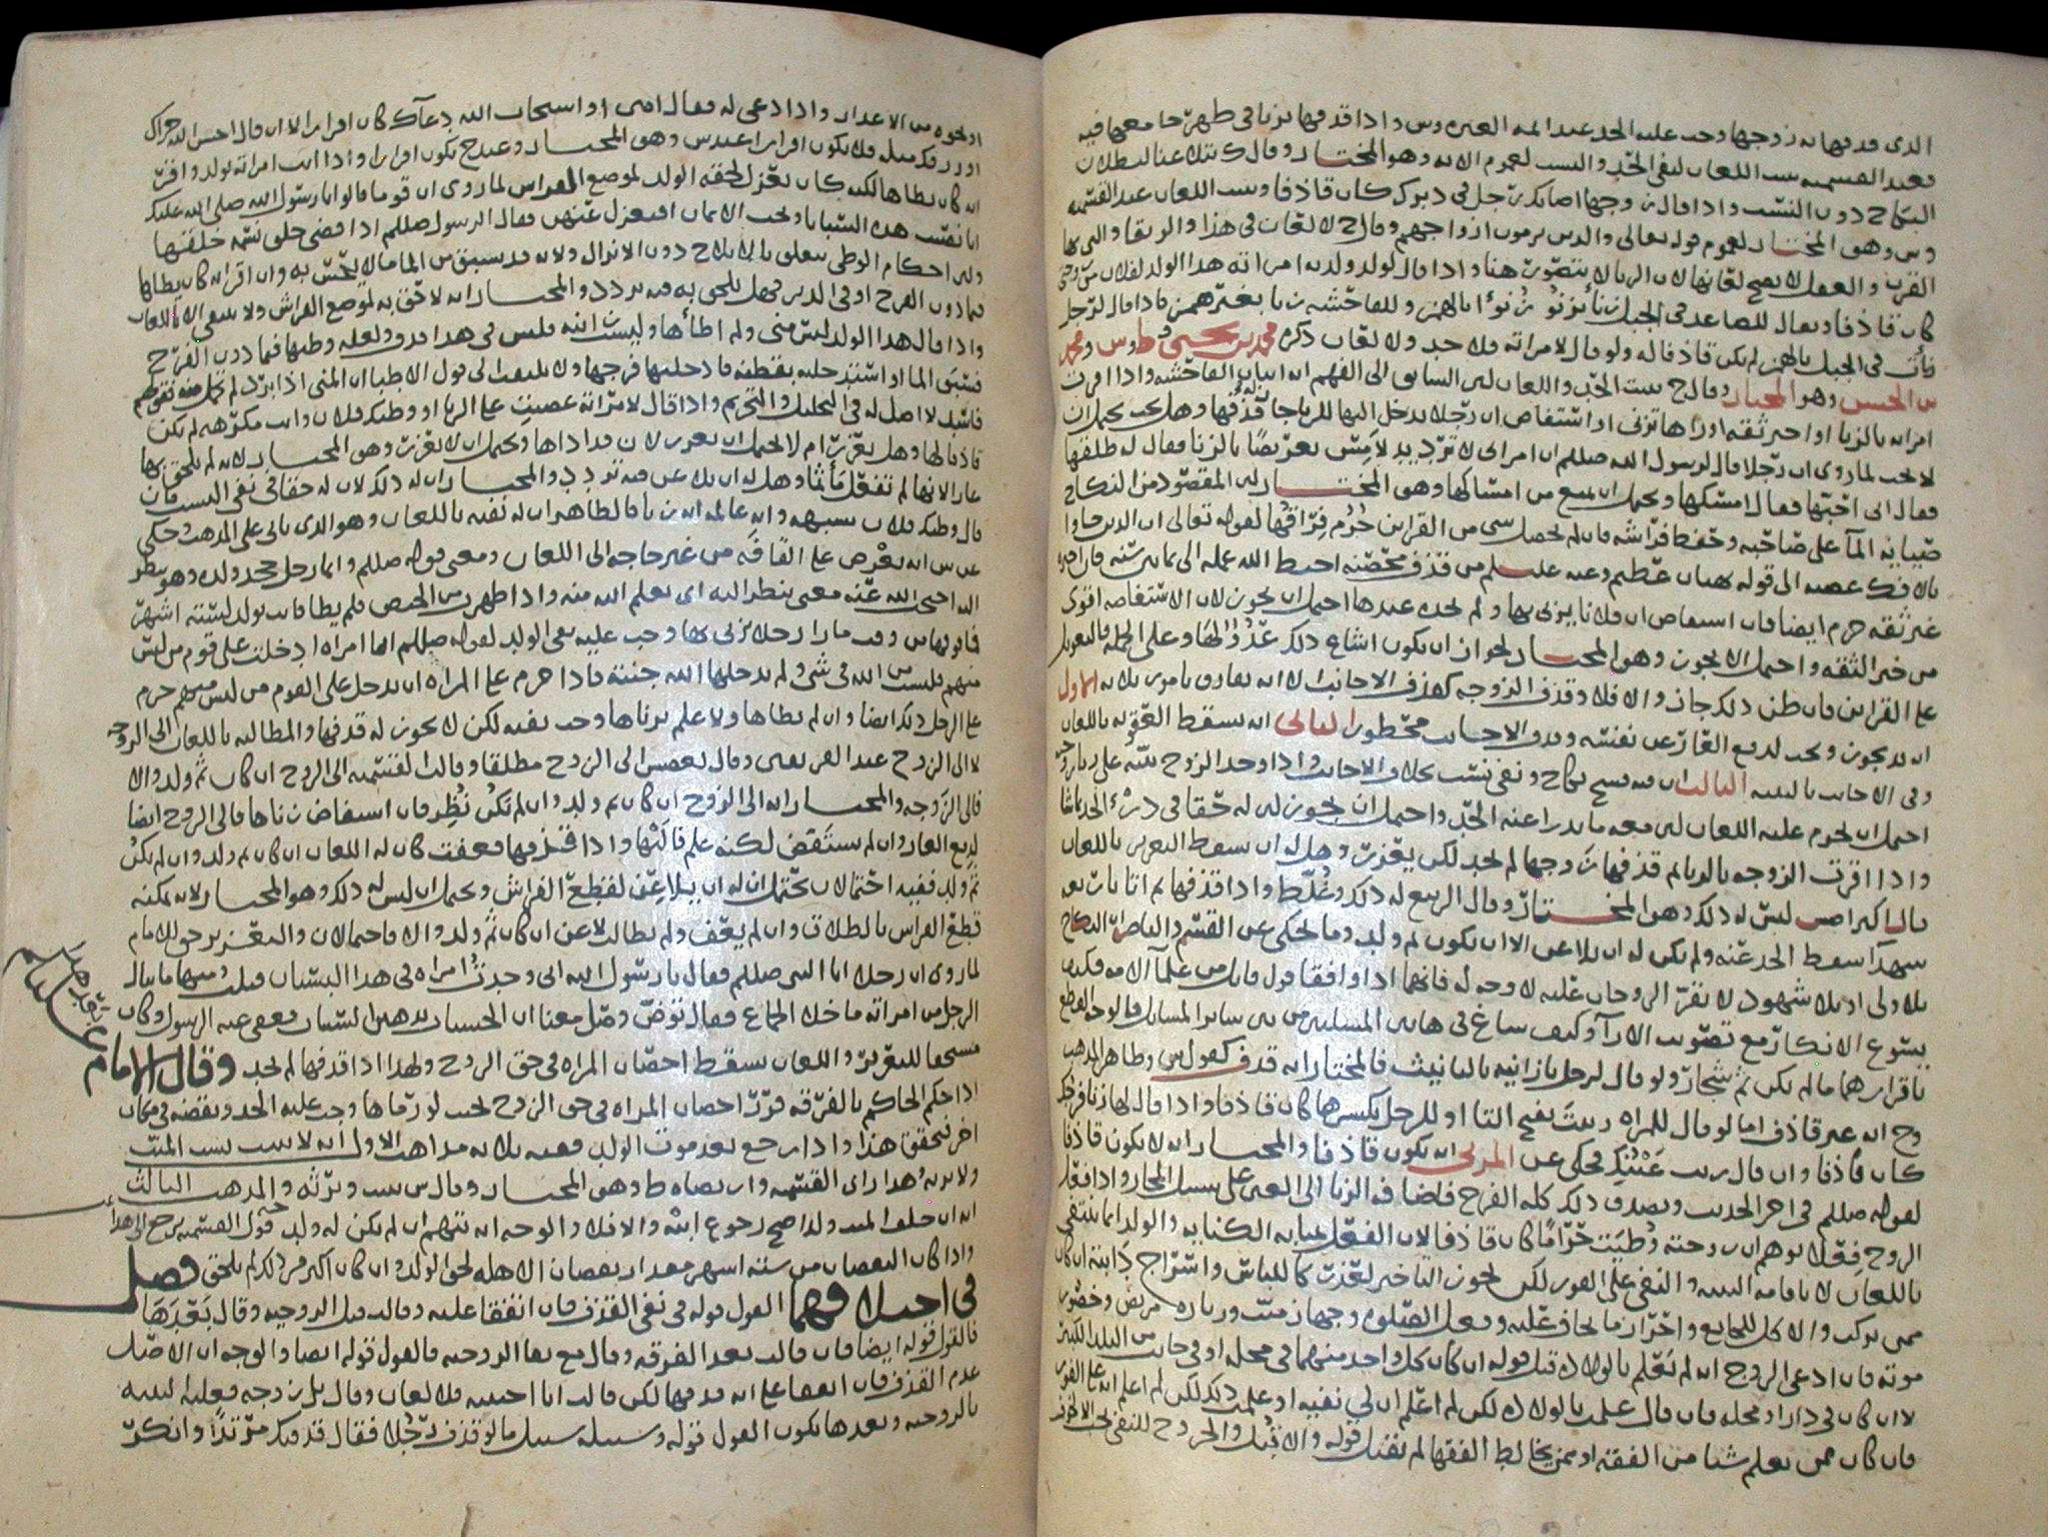 الذي قذفها به زوجها وجب عليه الحد عند ائمة العترة وس واذا قذفها بزنا في طهر جامعها فيه
فعند القسمية يثبت اللعان لنفي الحد والنسب لعموم الاية وهو المختار وقال ك يتلاعنا لبطلان
النكاح دون النسب واذا قال زوجها اصابك رجل في دبرك كان قاذفا وثبت اللعان عند القسمية
وس وهو المختار لعموم قوله تعالى والذين يرمون ازواجهم وقال ح لا لعان في هذا والرتقا والتي بها
القرن والعفل لا يصح لعانها لان الزنا لا يتصور هنا واذا قال لولد ولدته امراته هذا الولد لفلان
كان قاذفا ويقال للصاعد في الجبل زنأ يزنو زنوءا بالهمز وللفاحشة زنا بغير همز فاذا قال لرجل
زنأت في الجبل بالهمز لم يكن قاذفا له ولو قال لامراته فلا حد ولا لعان ذكره محمد بن يحيى وط وس ومحمد
بن الحسن وهو المختار وقال ح يثبت الحد واللعان لان السابق الى الفهم انه اتيان الفاحشة واذا اقرت
امراته بالزنا او اخبر ثقة او راها تزني او استفاض ان رجلا يدخل اليها للزنا جاز له قذفها وهل يجب يحتمل ان
لا يجب لما روي ان رجلا قال لرسول الله صللم ان امراتي لا ترد يد لامس تعريضا بالزنا فقال له طلقها
فقال اني احبها فقال امسكها ويحتمل ان يمنع من امساكها وهو المختار لان المقصود من النكاح
صيانة الما على صاحبه وحفظ فراشه فان لم يحصل شي من القراين حرم فراقها لقوله تعالى ان الذين جاوا
بالافك عصبة الى قوله بهتان عظيم وعنه عليلم من قذف محصنة احبط الله عمله الى ثمانين سنة فان اخبره
غير ثقة حرم ايضا فان استفاض ان فلانا يزني بها ولم يجده عندها احتمل ان يجوز لان الاستفاضة اقوى
من خبر الثقة واحتمل الا يجوز وهو المختار لجواز ان يكون اشاع ذلك عدو لها وعلى الجملة فالتعويل
على القراين فان ظن ذلك جاز والا فلا وقذف الزوجة كقذف الاجانب الا انه يفارق بامور ثلاثة الاول
انه قد يجوز ويجب لدفع العار عن نفسه وقذف الاجانب محظور الثاني انه يسقط العقوبة باللعان
وفي الاجانب بالبينة الثالث ان فيه فسخ نكاح ونفي نسب بخلاف الاجانب واذا وجد الزوج بينة على زنا زوجته
احتمل ان يحرم عليه اللعان لان معه ما يدرا عنه الحد واحتمل ان يجوز لان له حقا في درء الحد باللعان
واذا اقرت الزوجة بالزنا ثم قذفها زوجها لم يحد لكن يعزر وهل له ان يسقط التعزير باللعان
قال اكثر اص ليس له ذلك وهو المختار وقال الربيع له ذلك وغلط واذا قذفها ثم اتا باربعة
شهدا سقط الحد عنه ولم يكن له ان يلاعن الا ان يكون ثم ولد وما يحكى عن القسم والناصر ان النكاح
بلا ولي او بلا شهود لا يقر الزوجان عليه لا وجه له فانهما اذا وافقا قول قايل من علما الامة فكيف
يسوغ الانكار مع تصويب الارا وكيف ساغ في هاتين المسلتين من بين ساير المسايل فالوجه القطع
باقرارهما ما لم يكن ثم شجار ولو قال لرجل يا زانية بالتانيث فالمختار انه قذف كقول س وظاهر المذهب
وح انه غير قاذف اما لو قال للمراة زنيت بفتح التا او للرجل بكسرها كان قاذفا واذا قال لها زنا فرجك
كان قاذفا وان قال زنت عينك فحكي عن المزني انه يكون قاذفا والمختار انه لا يكون قاذفا
لقوله صللم في اخر الحديث ويصدق ذلك كله الفرج فاضافة الزنا الى العين على سبيل المجاز واذا فعل
الزوج فعلا يوهم ان زوجته وطيت حراما كان قاذفا لان الفعل بمثابة الكناية والولد انما ينتفي
باللعان لا باقامة البينة والنفي على الفور لكن يجوز التاخير لعذر كاللباس واسراج دابته ان كان
ممن يركب والاكل للجايع واحراز ما يخاف عليه وفعل الصلوة وجهاز ميت وزيارة مريض وحضور
موته فان ادعى الزوج انه لم يعلم بالولادة قبل قوله ان كان كل واحد منهما في محلة او في جانب من البلد الكبير
لا ان كان في دار او محلة فان قال علمت بالولادة لكن لم اعلم ان لي نفيه او علمت ذلك لكن لم اعلم انه على الفور
فان كان ممن يعلم شيا من الفقه او ممن يخالط الفقها لم يقبل قوله والا قبل والخروج للنفي يجب الا لخوف
او نحوه من الاعذار واذا دعي له فقال امين او استجاب الله دعاك كان اقرارا الا ان قال احسن الله جزاك
او رزقك مثله فلا يكون اقرارا عند س وهو المختار وعند ح يكون اقرارا واذا اتت امراته بولد واقر
انه كان يطاها لكنه كان يعزل لحقه الولد لموضع الفراش لما روي ان قوما قالوا يا رسول الله صلى الله عليك
انا نصيب هذه السبايا ونحب الاثمان افنعزل عنهن فقال الرسول صللم اذا قضى خلق نسمة خلقها
ولان احكام الوطي تتعلق بالايلاج دون الانزال ولانه قد يسبق من الما ما لا يحس به وان اقر انه كان يطاها
فيما دون الفرج او في الدبر فهل يلحق به فيه تردد والمختار انه لاحق به لموضع الفراش ولا ينتفي الا باللعان
واذا قال هذا الولد ليس مني ولم اطأها وليست زانية فليس في هذا قذف ولعله وطيها فيما دون الفرج
فسبق الما او استدخلته بقطنة فادخلتها فرجها ولا يلتفت الى قول الاطبا ان المني اذا برد لم
فاسد لا اصل له في التحليل والتحريم واذا قال لامراته غصبت على الزنا او وطيك فلان وانت مكرهة لم يكن
قاذفا لها وهل يعزر ام لا يحتمل ان يعزر لانه قد اذاها ويحتمل ان لا يعزر وهو المختار لانه لم يلحق بها
عارا لانها لم تفعل مأثما وهل له ان يلاعن فيه تردد والمختار ان له ذلك لان له حقا في نفي النسب فان
قال وطيك فلان بشبهة وانت عالمة انه زنا فالظاهر ان له نفيه باللعان وهو الذي ياتي على المذهب وحكي
عن س انه يعرض على القافة من غير حاجة الى اللعان ومعنى قوله صللم وايما رجل جحد ولده وهو ينظر
اليه احتجب الله عنه معنى ينظر اليه اي يعلم انه منه واذا طهرت من الحيض فلم يطا فاتت بولد لستة اشهر
فما فوقها من وقت ما را رجلا يزني بها وجب عليه نفي الولد لقوله صللم ايما امراة ادخلت على قوم من ليس
منهم فليست من الله في شي ولم يدخلها الله جنته فاذا حرم على المراة ان تدخل على القوم من ليس منهم حرم
على الرجل ذلك ايضا وان لم يطاها ولا علم بزناها وجب نفيه لكن لا يجوز له قذفها والمطالبة باللعان الى الزوجة
لا الى الزوج عند الفريقين وقال بعض الى الزوج مطلقا وقالت القسمية الى الزوج ان كان ثم ولد والا
فالى الزوجة والمختار انه الى الزوج ان كان ثم ولد وان لم يكن نظر فان استفاض زناها فالى الزوج ايضا
لدفع العار وان لم يستفض لكنه علم فالتها واذا قذفها فعفت كان له اللعان ان كان ثم ولد وان لم يكن
ثم ولد ففيه احتمالان يحتمل ان له ان يلاعن لقطع الفراش ويحتمل ان ليس له ذلك وهو المختار لانه يمكنه
قطع الفراش بالطلاق وان لم يعف ولم يطالب لاعن ان كان ثم ولد والا فاحتمالان والتعزير حق للامام
لما روي ان رجلا اتا النبي صللم فقال يا رسول الله اني وجدت امراة في هذا البستان فنلت منها ما ينال
الرجل من امراته ما خلا الجماع فقال توض وصل معنا ان الحسنات يذهبن السيئات فعفى عنه الرسول وكان
مستحقا للتعزير واللعان يسقط احصان المراة في حق الزوج ولهذا اذا قذفها لم يحد وقال الامام
اذا حكم الحاكم بالفرقة فرد احصان المراة في حق الزوج بحيث لو رماها وجب عليه الحد ونقضه في مكان
اخر فتحقق هذا واذا رجع بعد موت الولد ففيه ثلاثة مذاهب الاول انه لا يثبت نسب الميت
ولا يرثه وهذا راي القسمية واارتضاه ط وهو المختار وقال س يثبت ويرثه والمذهب الثالث
انه ان خلف الميت ولدا صح رجوع ابيه والا فلا والوجه انه متهم ان لم يكن له ولد
واذا كان النقصان من ستة اشهر مقدار نقصان الاهلة لحق الولد وان كان اكثر من ذلك لم يلحق فصل
في اختلافهما القول قوله في نفي القذف فان اتفقا عليه وقالت قبل الزوجية وقال بعدها
فالقول قوله ايضا فان قالت بعد الفرقة وقال مع بقا الزوجية فالقول قوله ايضا والوجه ان الاصل
عدم القذف فان اتفقا على انه قذفها لكن قالت انا اجنبية فلا لعان وقال بل زوجة فعليه البينة
بالزوجية وبعدها يكون القول قوله وسبيله سبيل ما لو قذف رجلا فقال قذفتك مرتدا وانكر